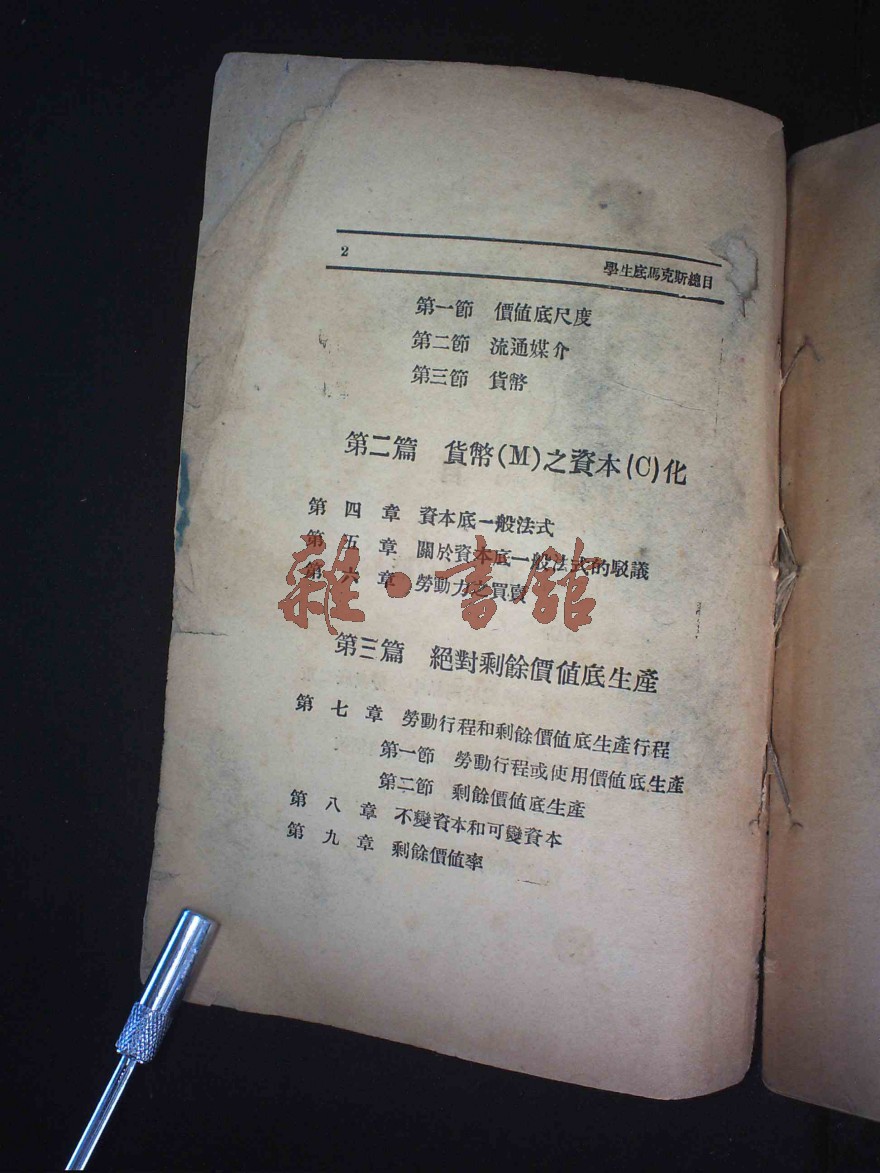 2 學生底馬克斯總目
第一節 價值底尺度
第二節 流通媒介
第三節 貨幣
第二篇 貨幣(M)之資本(C)化
第四章 資本底一般法式
第五章 關於資本底一般法式的駁議
第六章 勞動力之買賣
雜·書館
第三篇 絕對剩餘價值底生產
第七章 勞動行程和剩餘價值底生產行程
第一節 勞動行程或使用價值底生產
第二節 剩餘價值底生產
第八章 不變資本和可變資本
第九章 剩餘價值率